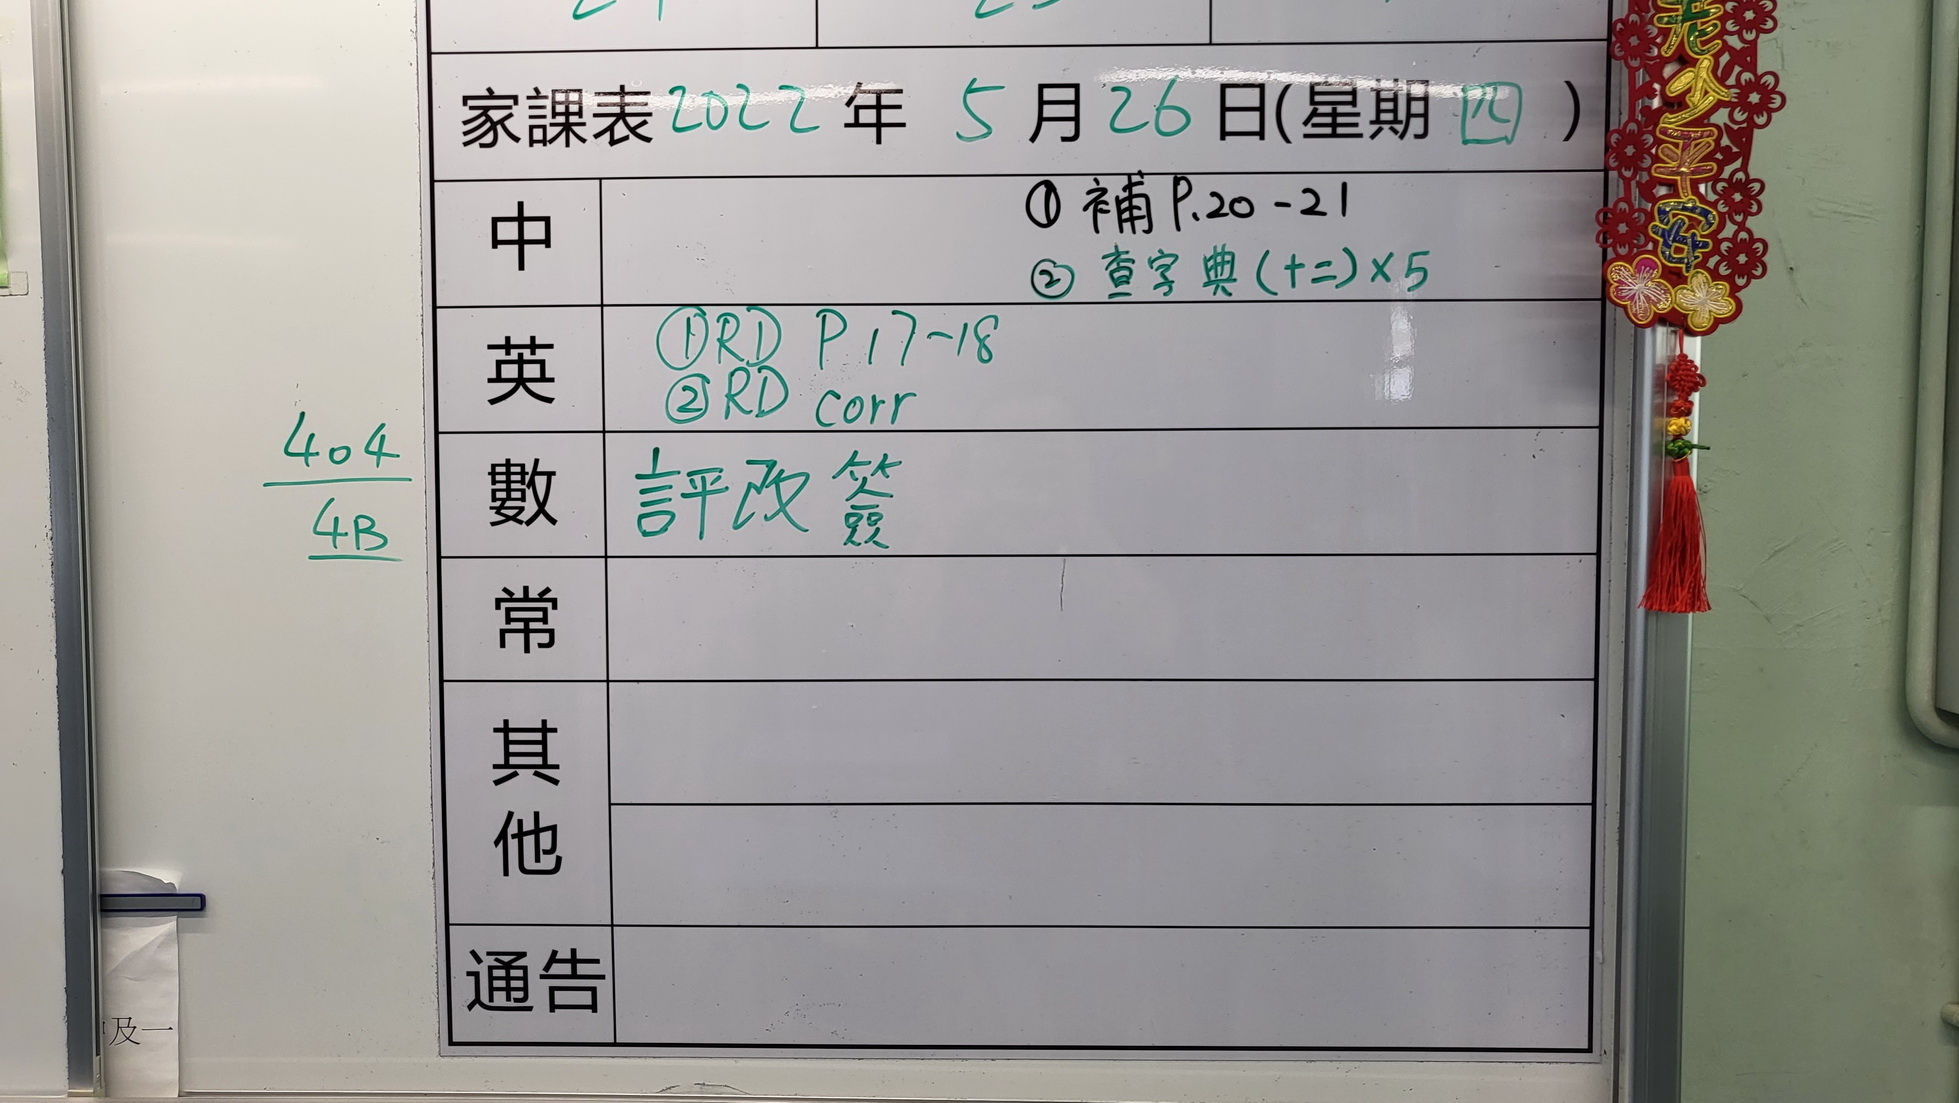 家課表2022年 5月26日(星期四)
中
① 補 P.20-21
② 查字典(十二)×5
英
①RD P 17~18
②RD corr
數
評改簽
常
其他
通告
404
4B
老少平安
及一